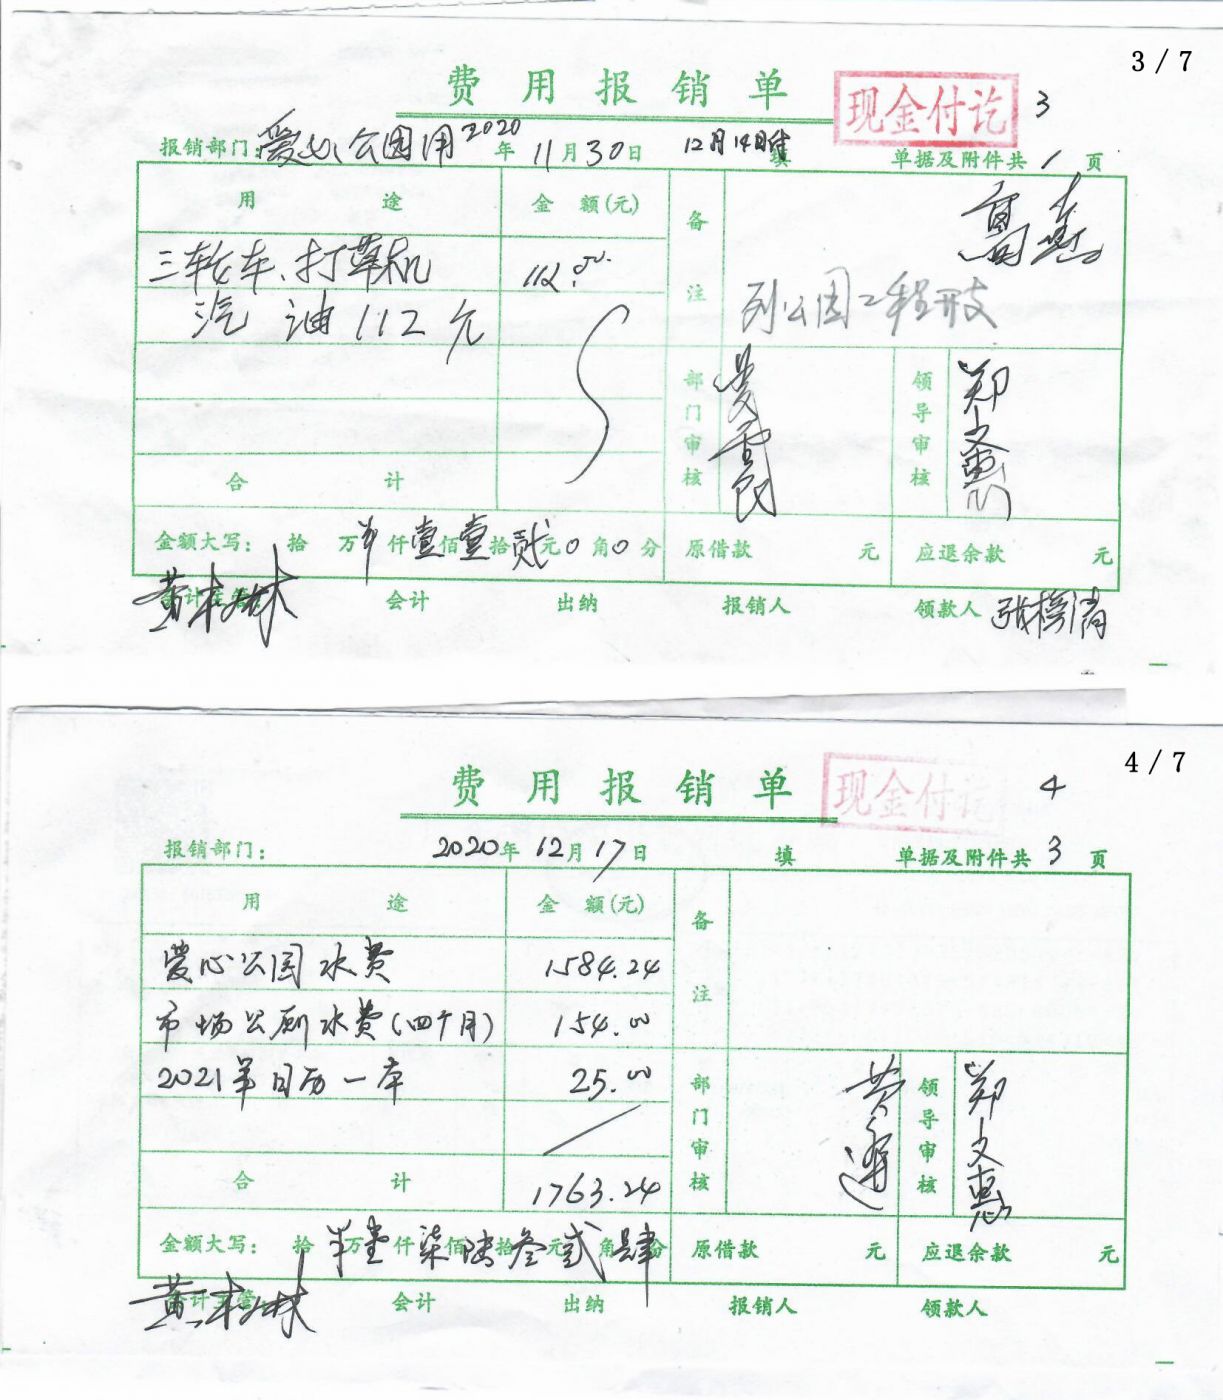 3 / 7
费用报销单
现金付讫
3
报销部门：爱心公园用 2020年 11月30日 12月14日 填 单据及附件共 1 页
用 途 金 额(元) 备注
三轮车、打草机 112.00
汽 油 112元
列公园工程开支
部门审核 领导审核 郑文惠
合 计
金额大写： 拾 万 仟壹佰壹拾贰元0角0分 原借款 元 应退余款 元
会计主管： 会计 出纳 报销人 领款人
黄林
4 / 7
费用报销单
现金付讫
4
报销部门： 2020年 12月17日 填 单据及附件共 3 页
用 途 金 额(元) 备注
爱心公园水费 1584.24
市场公厕水费(四个月) 154.00
2021年日历一本 25.00
部门审核 领导审核 郑文惠
合 计 1763.24
金额大写： 拾 万壹仟柒佰陆拾叁元贰角肆分 原借款 元 应退余款 元
会计主管： 会计 出纳 报销人 领款人